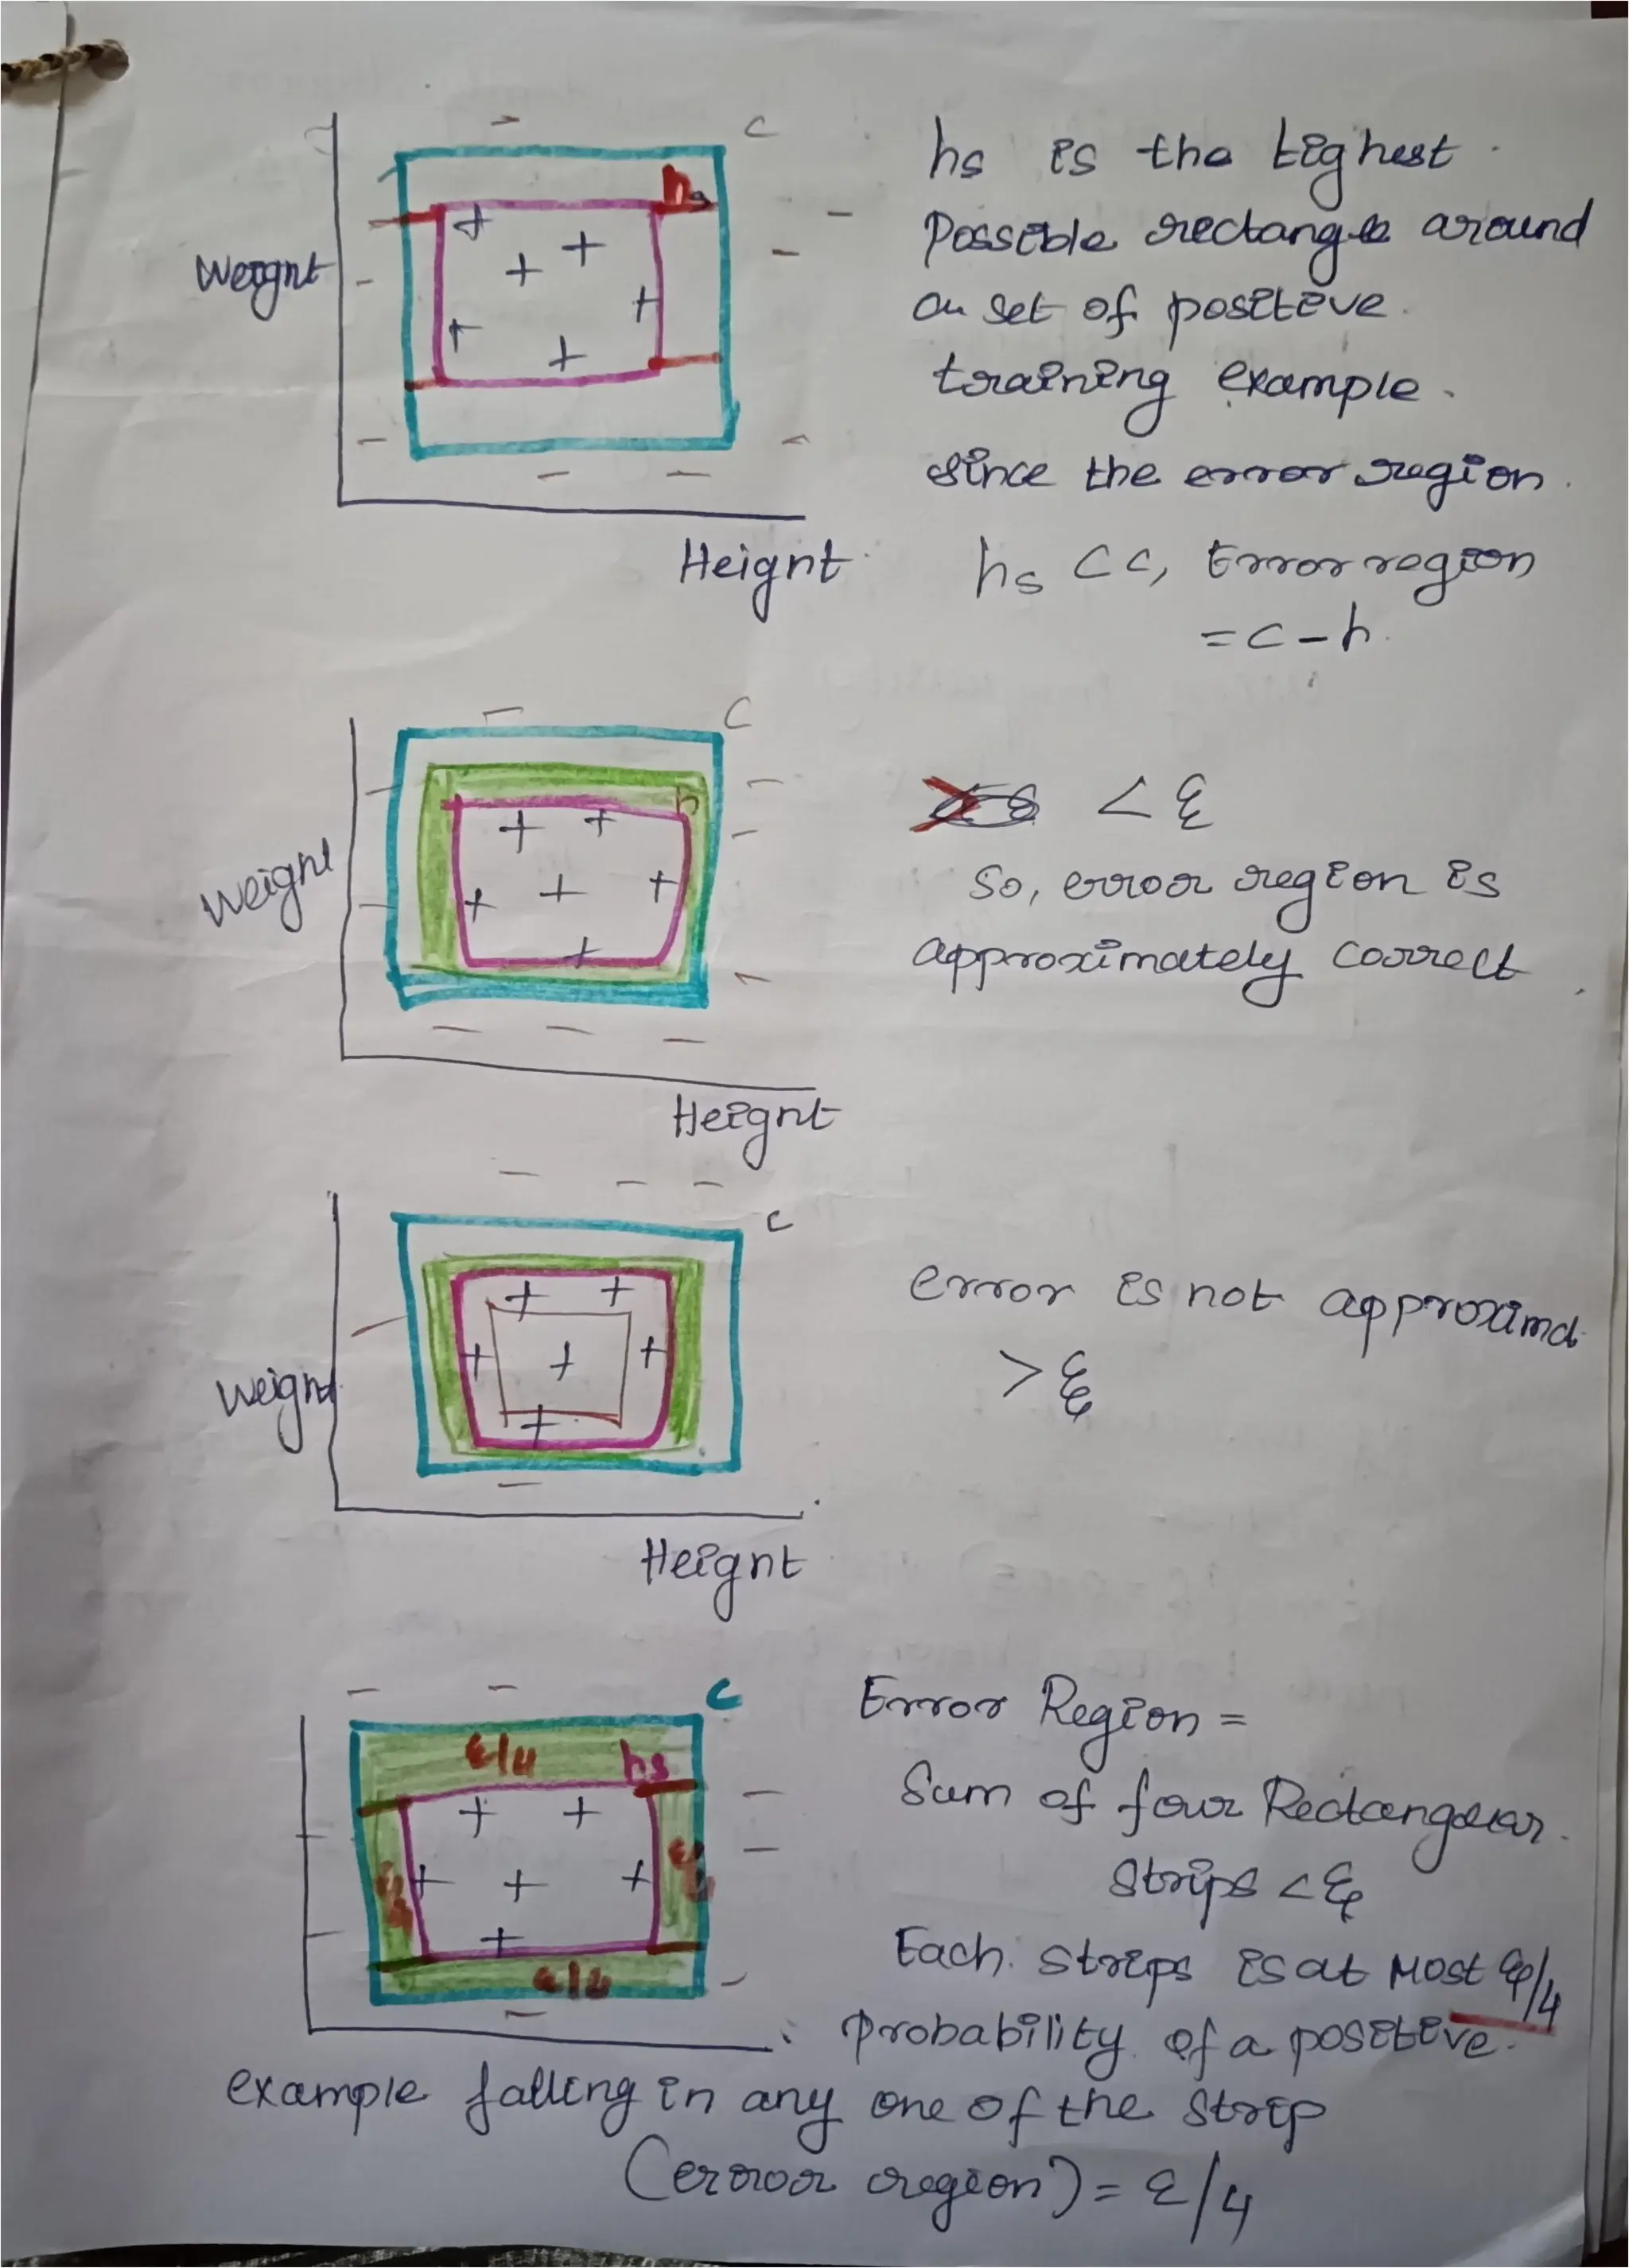 C
hs
Weight
Height
hs is the tighest
Possible rectangle around
an set of positive
training example.
since the error region.
hs ⊂ c, Error region
= c - h.
C
h
Weight
Height
< ε
So, error region is
approximately correct
C
Weight
Height
error is not approximd
> ε
C
ε/4
hs
ε/4
ε/4
ε/4
Error Region =
Sum of four Rectangular
Strips < ε
Each strips is at most ε/4
probability of a positive
example falling in any one of the strip
(error region) = ε/4